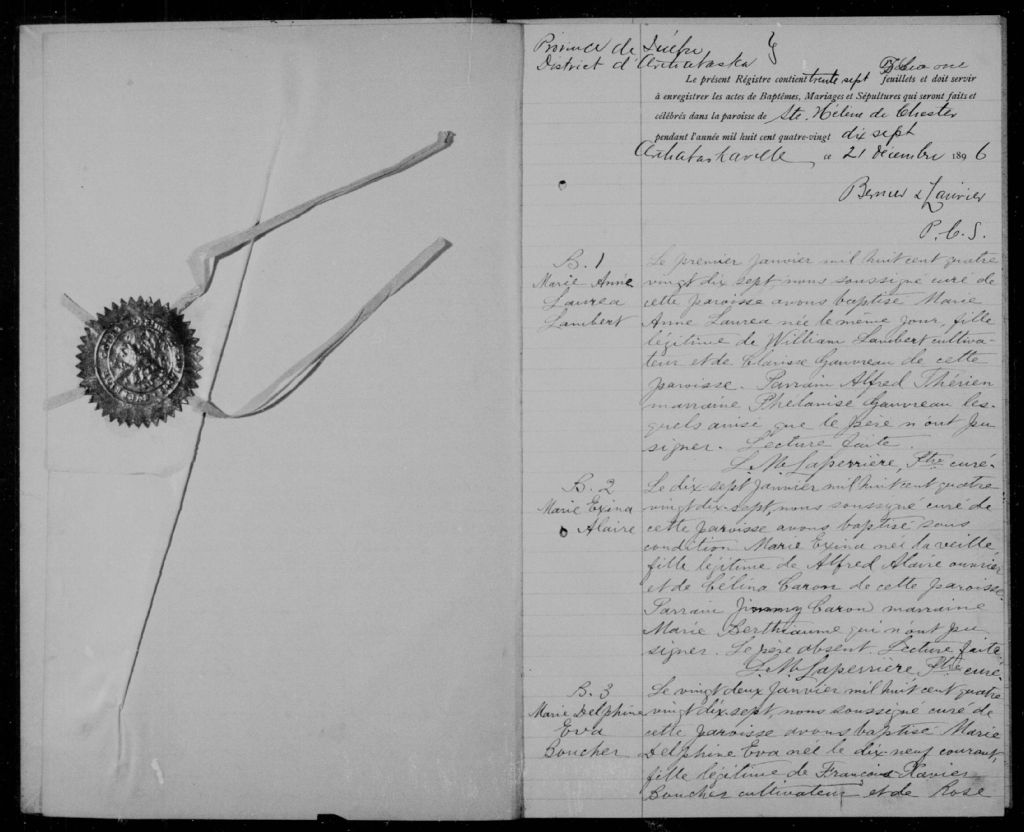 Province de Québec
District d'Arthabaska
Folio one
Le présent Régistre contient trente sept feuillets et doit servir
à enregistrer les actes de Baptêmes, Mariages et Sépultures qui seront faits et
célébrés dans la paroisse de Ste. Hélène de Chester
pendant l'année mil huit cent quatre-vingt dix sept
Arthabaskaville ce 21 décembre 1896
Bernier & Laurier
P. C. S.
B. 1
Marie Anne
Laurea
Lambert
Le premier Janvier mil huit cent quatre
vingt dix sept nous soussigné curé de
cette paroisse avons baptisé Marie
Anne Laurea née le même jour, fille
légitime de William Lambert cultiva-
teur et de Clarisse Gauvreau de cette
paroisse. Parrain Alfred Thérien
marraine Phelanise Gauvreau les-
quels ainsi que le père n'ont pu
signer. Lecture faite.
L. M. Laperrière, Ptre curé.
B. 2
Marie Exina
Alaire
Le dix sept Janvier mil huit cent quatre
vingt dix-sept nous soussigné curé de
cette paroisse avons baptisé sous
condition Marie Exina née la veille
fille légitime de Alfred Alaire ouvrier
et de Célina Caron de cette paroisse.
Parrain Jimmy Caron marraine
Marie Berthiaume qui n'ont pu
signer. Le père absent. Lecture faite
L. M. Laperrière, Ptre curé.
B. 3
Marie Delphine
Eva
Boucher
Le vingt deux Janvier mil huit cent quatre
vingt dix-sept, nous soussigné curé de
cette paroisse avons baptisé Marie
Delphine Eva née le dix-neuf courant,
fille légitime de François Xavier
Boucher cultivateur et de Rose